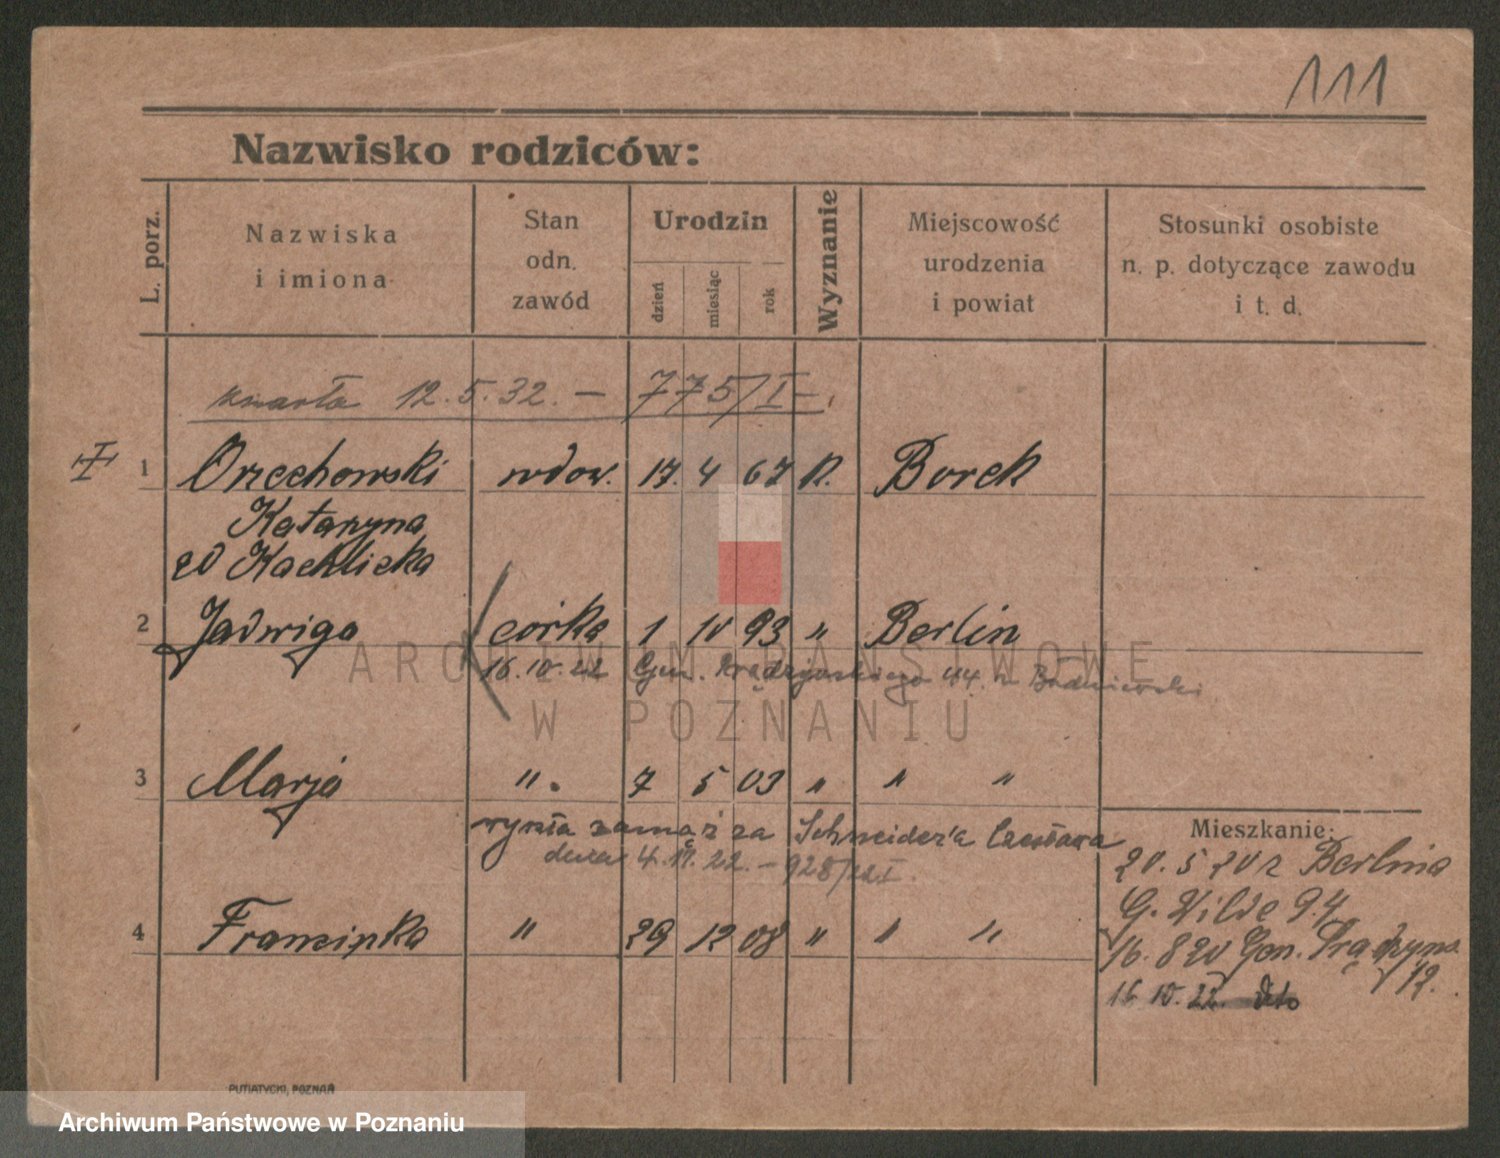 111
Nazwisko rodziców:
L. porz.
Nazwiska
i imiona
Stan
odn.
zawód
Urodzin
dzień
miesiąc
rok
Wyznanie
Miejscowość
urodzenia
i powiat
Stosunki osobiste
n. p. dotyczące zawodu
i t. d.
zmarła 12.5.32. — 775/I —
1 Orzechowski wdow. 17. 4 67 R. Borek
Katarzyna
zd
2 Jadwiga córka 1 10 93 " Berlin
16.10.22 Gen. Prądzyńskiego 44. Budniewski
3 Marja ". 7 5 03 " " "
wyszła zamąż za Schneider'a Czesława
dnia 4.11.22. — 928/22 I.
4 Franciszka " 29 12 08 " " "
Mieszkanie:
20.5 20 z Berlina
G. Wilde 94
16.8 20 Gen. Prądzyns.
16 10. 22. dto
PUTIATYCKI, POZNAŃ
ARCHIWUM PAŃSTWOWE
W POZNANIU
Archiwum Państwowe w Poznaniu